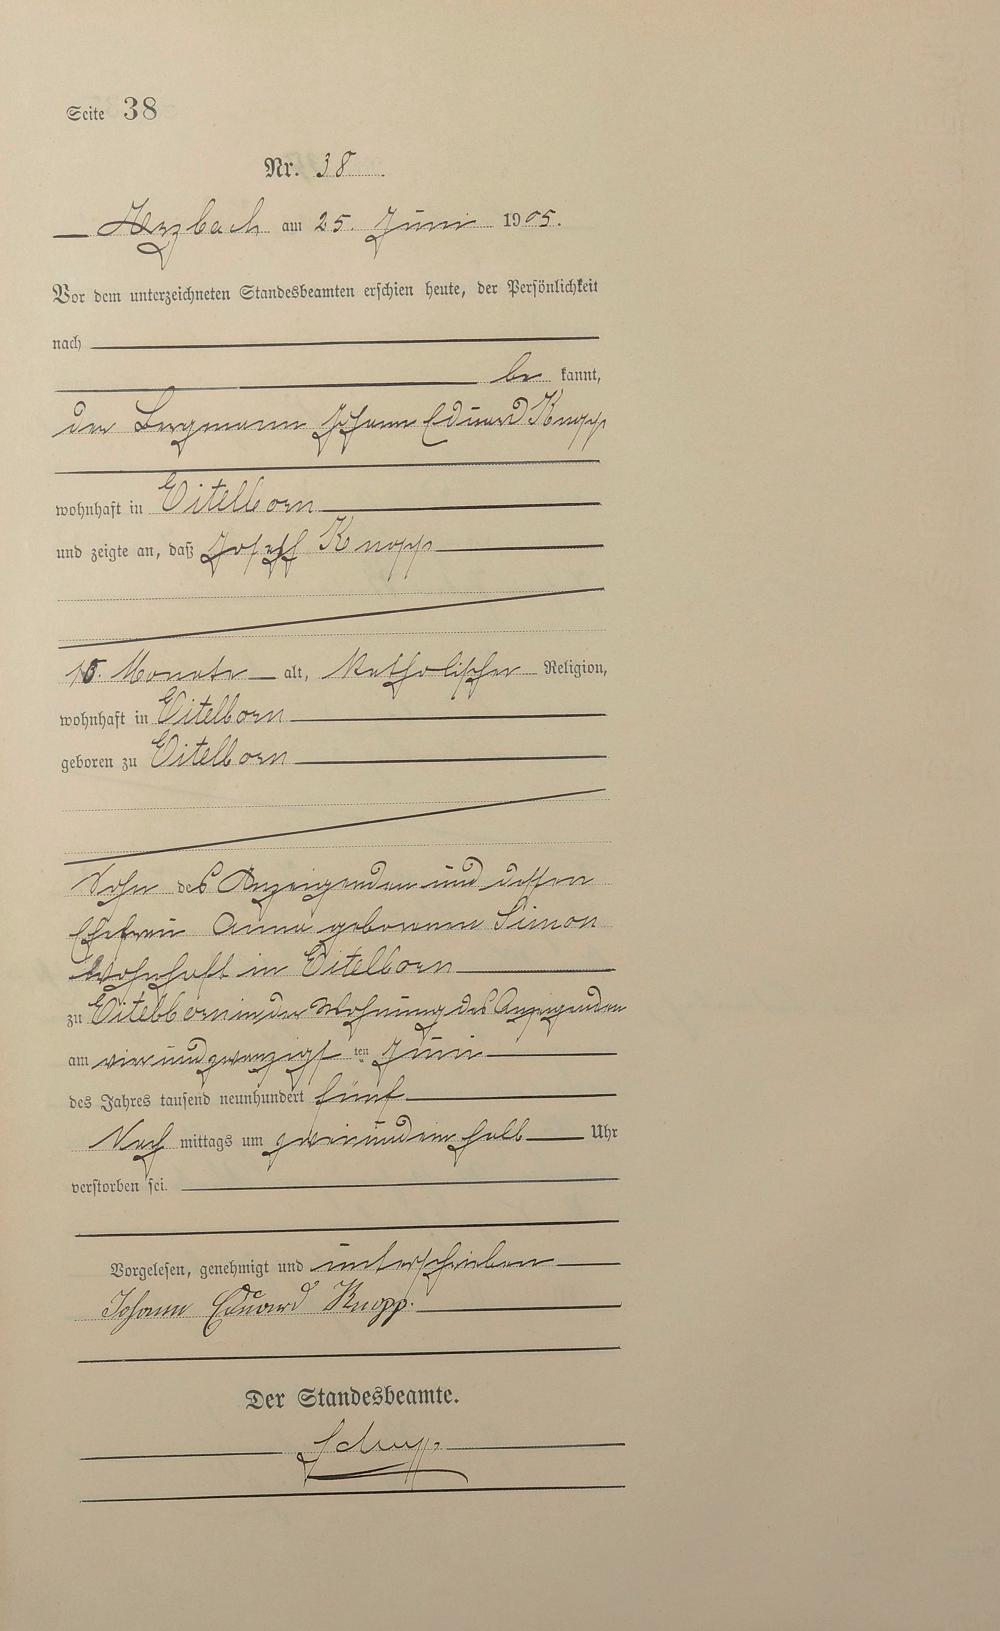 Seite 38
Nr. 38
Arzbach am 25. Juni 1905.
Vor dem unterzeichneten Standesbeamten erschien heute, der Persönlichkeit
nach
be kannt,
der Bergmann Johann Eduard Knopp
wohnhaft in Eitelborn
und zeigte an, daß Joseff Knopp
Monate alt, katholischer Religion,
wohnhaft in Eitelborn
geboren zu Eitelborn
Sohn des Anzeigenden und dessen
Ehefrau Anna geborenen Simon
wohnhaft in Eitelborn
zu Eitelborn in der Wohnung des Anzeigenden
am vierundzwanzigs ten Juni
des Jahres tausend neunhundert fünf
Nach mittags um zweiundein halb Uhr
verstorben sei.
Vorgelesen, genehmigt und unterschrieben
Johann Eduard Knopp.
Der Standesbeamte.